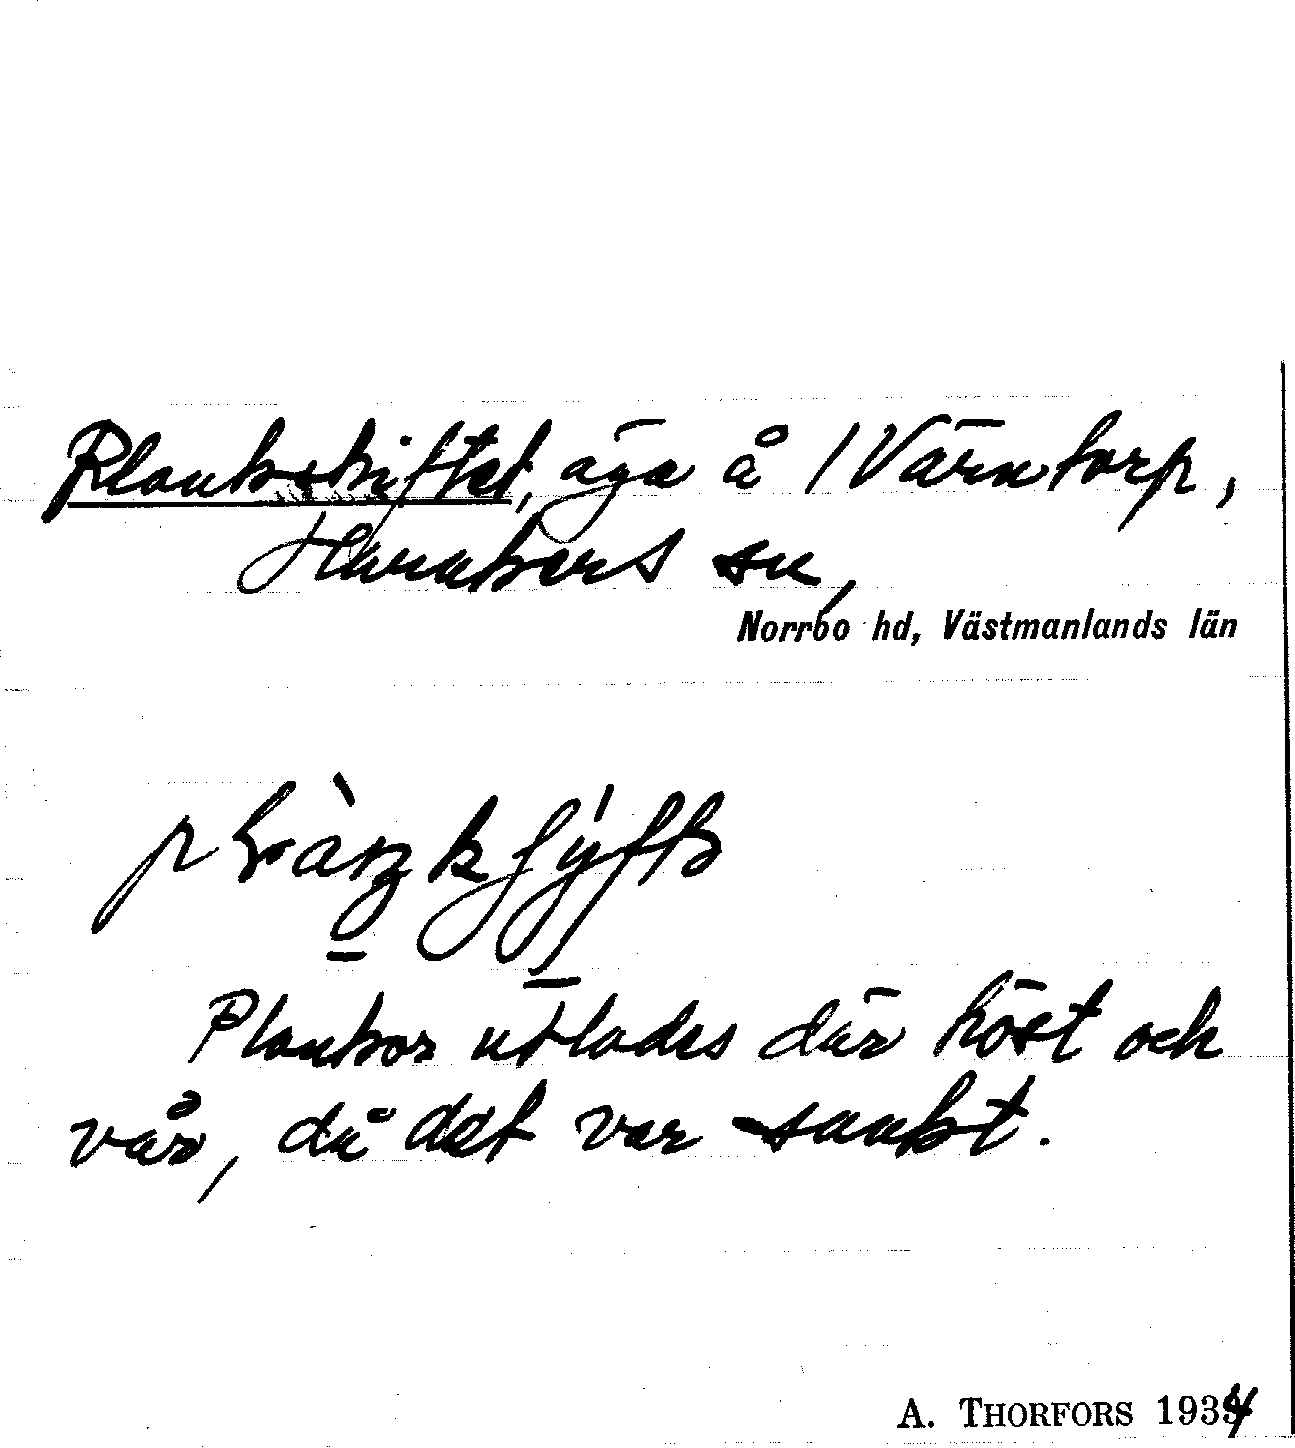 Plankskiftet, äga å 1 Värntorp,
Harakers sn,
Norrbo hd, Västmanlands län
Plankor utlades där höst och
vår, då det var sankt.
A. THORFORS 1934